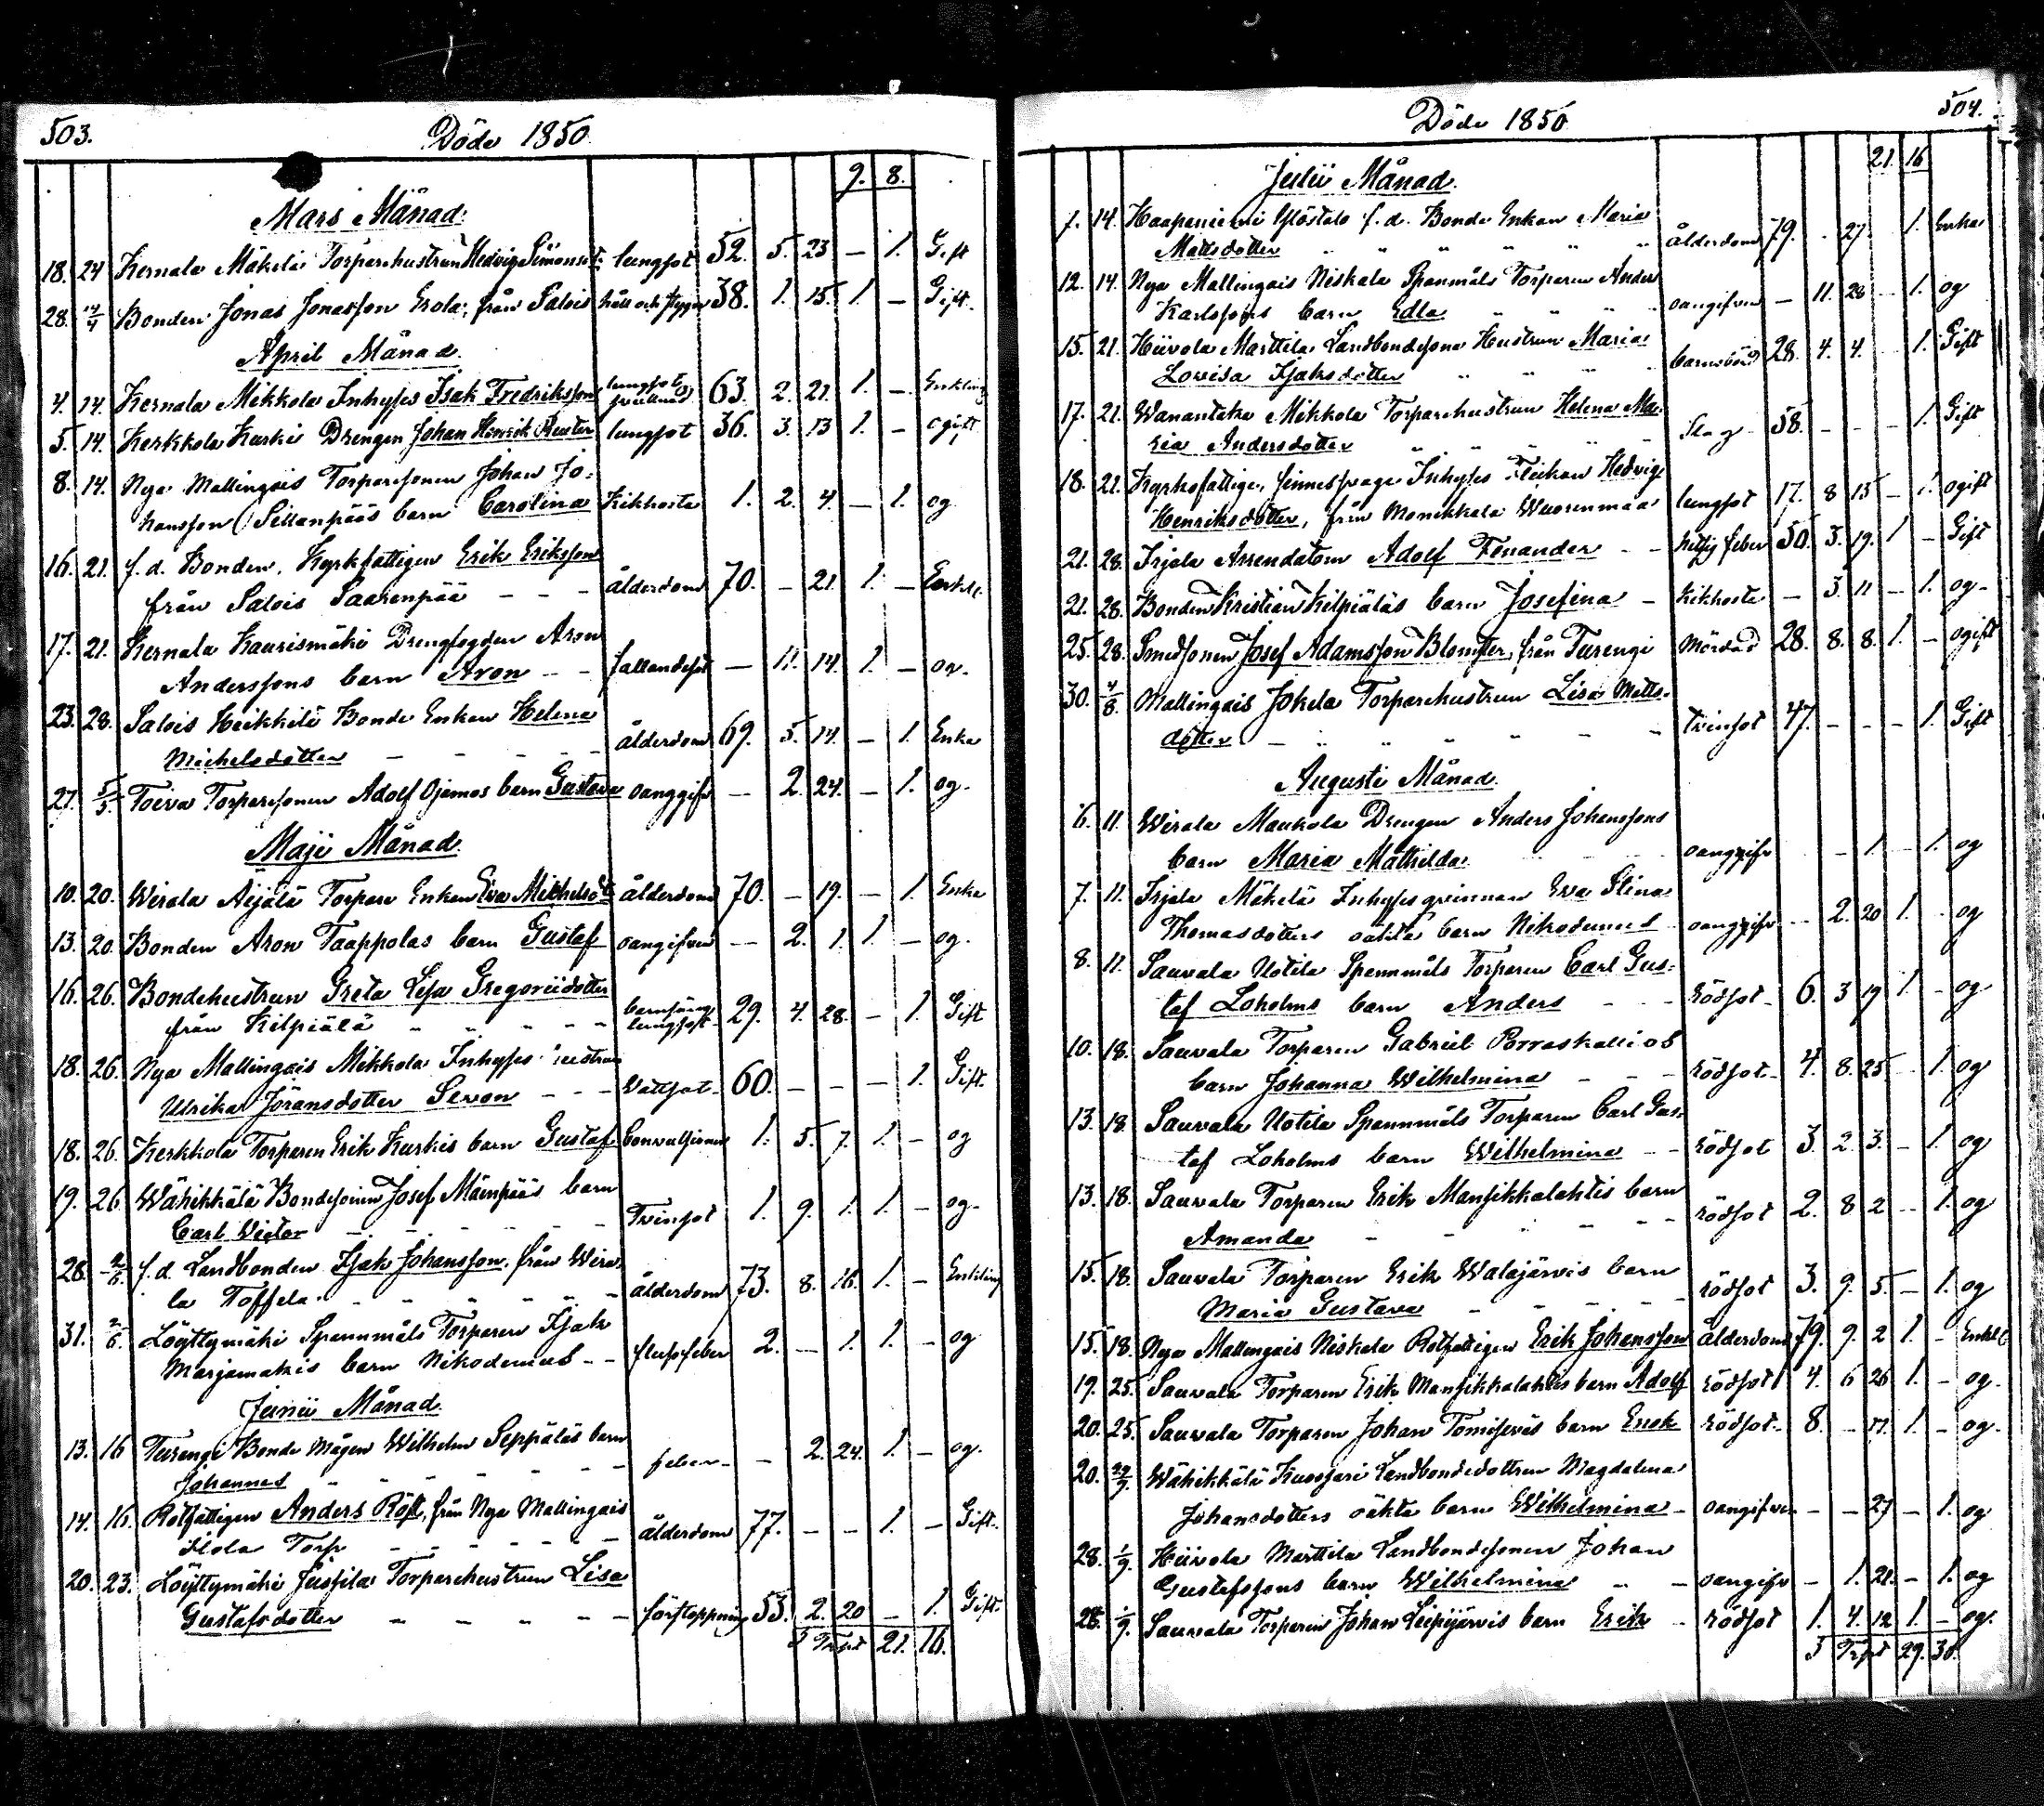 503. Döde 1850.
9. 8.
Mars Månad.
18. 24 Kernala Mäkelä Torparehustrun Hedvig Simonsd:r lungsot 52. 5. 23 — 1. Gift
28. 14/4 Bonden Jonas Jonasson Erola, från Salois håll och stygn 38. 1. 15. 1. — Gift.
April Månad.
4. 14. Kernala Mikkola Inhyses Isak Fredriksson lungsot 63. 2. 21. 1. — Enkling
5. 14. Kerkkola Kurki Drengen Johan Henrik Reuter lungsot 36. 3. 13 1. — ogift
8. 14. Nya Mallingais Torparesonen Johan Jo-
hansson Sillanpääs barn Carolina Kikhosta 1. 2. 4. — 1. og
16. 21. f. d. Bonden, Kyrkfattigen Erik Eriksson
från Salois Saarenpää – – – ålderdom 70. — 21. 1. — Enkl.
17. 21. Kernala Kaurismäki Drengfogden Aron
Anderssons barn Aron – – fallandesot — 11. 14. 1. — og.
23. 28. Salois Heikkilä Bonde Enkan Helena
Michelsdotter – – – – – ålderdom 69. 5. 14. — 1. Enka
27. 5/5 Toiva Torparesonen Adolf Ojamos barn Gustava oangifv — 2. 24. — 1. og.
Maji Månad.
10. 20. Wirala Äijälä Torpare Enkan Eva Michelsd:r ålderdom 70. — 19. — 1. Enka
13. 20. Bonden Aron Taappolas barn Gustaf oangifven — 2. 1. 1. — og.
16. 26. Bondehustrun Greta Lisa Gregoriidotter
från Kilpiälä barnsäng lungsot 29. 4. 28. — 1. Gift
18. 26. Nya Mallingais Mikkola Inhyses hustrun
Ulrika Jöransdotter Sevon – – – Vattsot 60. — — — 1. Gift.
18. 26. Kerkkola Torparen Erik Kurkis barn Gustaf Convulsioner 1. 5. 7. 1. — og
19. 26 Wähikkälä Bondesonen Josef Mäenpääs barn
Carl Victor – – – – – – Tvinsot 1. 9. 1. 1. — og.
28. 2/6. f. d. Landbonden Isak Johansson, från Wira-
la Toffela. ålderdom 73. 8. 16. 1. — Enkling
31. 2/6. Löyttymäki Spannmåls Torparen Isak
Marjamäkis barn Nikodemus – – slupfeber 2. — 1. 1. — og
Junii Månad.
13. 16 Turengi Bonde Mågen Wilhelm Seppäläs barn
Johannes feber — 2. 24. 1. — og.
14. 16. Rotfattigen Anders Röst, från Nya Mallingais
Ilola Torp – – – – – – ålderdom 77. — — 1. — Gift.
20. 23. Löyttymäki Jussila Torparehustrun Lisa
Gustafsdotter – – – – – förstoppning 53. 2. 20 — 1. Gift.
Trpt 21. 16.
Döde 1850 504.
21. 16
Julii Månad.
7. 14. Haapaniemi f. d. Bonde Enkan Maria
Mattsdotter ålderdom 79. . 27. 1. Enka
12. 14. Nya Mallingais Niskala Spanmåls Torparen Anders
Karlssons barn Edla oangifven — 11. 28 — 1. og
15. 21. Hiivola Marttila Landbondesons Hustrun Maria
Lovisa Isaksdotter barnsbörd 28. 4. 4. — 1. Gift
17. 21. Wanantaka Mikkola Torparehustrun Helena Ma-
ria Andersdotter Slag 58. — — — 1. Gift
18. 21. Kyrkofattige, sinnessvage Inhyses Flickan Hedvig
Henriksdotter, från Monikkala Wuorenmaa lungsot 17. 8 15 — 1. ogift
21. 28. Irjala Arrendatorn Adolf Fonander – – hetsig feber 50. 3. 19. 1 — Gift
21. 28. Bonden Kristian Kilpiäläs barn Josefina – kikhosta — 3. 11 — 1. og.
25. 28. Smedsonen Josef Adamsson Blomster, från Turengi Mördad 28. 8. 8. 1. — ogift
30. 4/8. Mallingais Jokela Torparehustrun Lisa Matts-
dotter – tvinsot 47. — — — 1. Gift
Augusti Månad.
6. 11. Wirala Maukola Drengen Anders Johanssons
barn Maria Mathilda oangifv — 1. — 1. og
7. 11. Irjala Mäkelä Inhysesqvinnan Eva Stina
Thomasdotters oäkta barn Nikodemus oangifv — 2. 20 1. — og
8. 11. Sauvala Uotila Spannmåls Torparen Carl Gus-
taf Loholms barn Anders – – – rödsot 6. 3 19 1. — og
10. 18. Sauvala Torparen Gabriel Porraskallios
barn Johanna Wilhelmina – – – rödsot 4. 8. 25. — 1. og
13. 18. Sauvala Uotila Spannmåls Torparen Carl Gus-
taf Loholms barn Wilhelmina – – rödsot 3. 2. 3. — 1. og
13. 18. Sauvala Torparen Erik Mansikkalahtis barn
Amanda rödsot 2. 8 2 — 1. og
15. 18. Sauvala Torparen Erik Walajärvis barn
Maria Gustava rödsot 3. 9. 5. — 1. og
15. 18. Nya Mallingais Niskala Rotfattigen Erik Johansson ålderdom 79. 9. 2 1. — Enkl
19. 25. Sauvala Torparen Erik Mansikkalahtis barn Adolf rödsot 4. 6 26 1. — og.
20. 25. Sauvala Torparen Johan barn Enok rödsot 8. — 17. 1. — og.
20. Wähikkälä Kuusjari Landbondedottren Magdalena
Johansdotters oäkta barn Wilhelmina – oangifven — — 27 — 1. og
28. 1/9. Hiivola Marttila Landbondesonen Johan
Gustafssons barn Wilhelmina – – oangifv — 1. 21. — 1. og
28. 1/9. Sauvala Torparen Johan Leipijärvis barn Erik – rödsot 1. 4. 12 1. — og.
Trpt 29. 30.